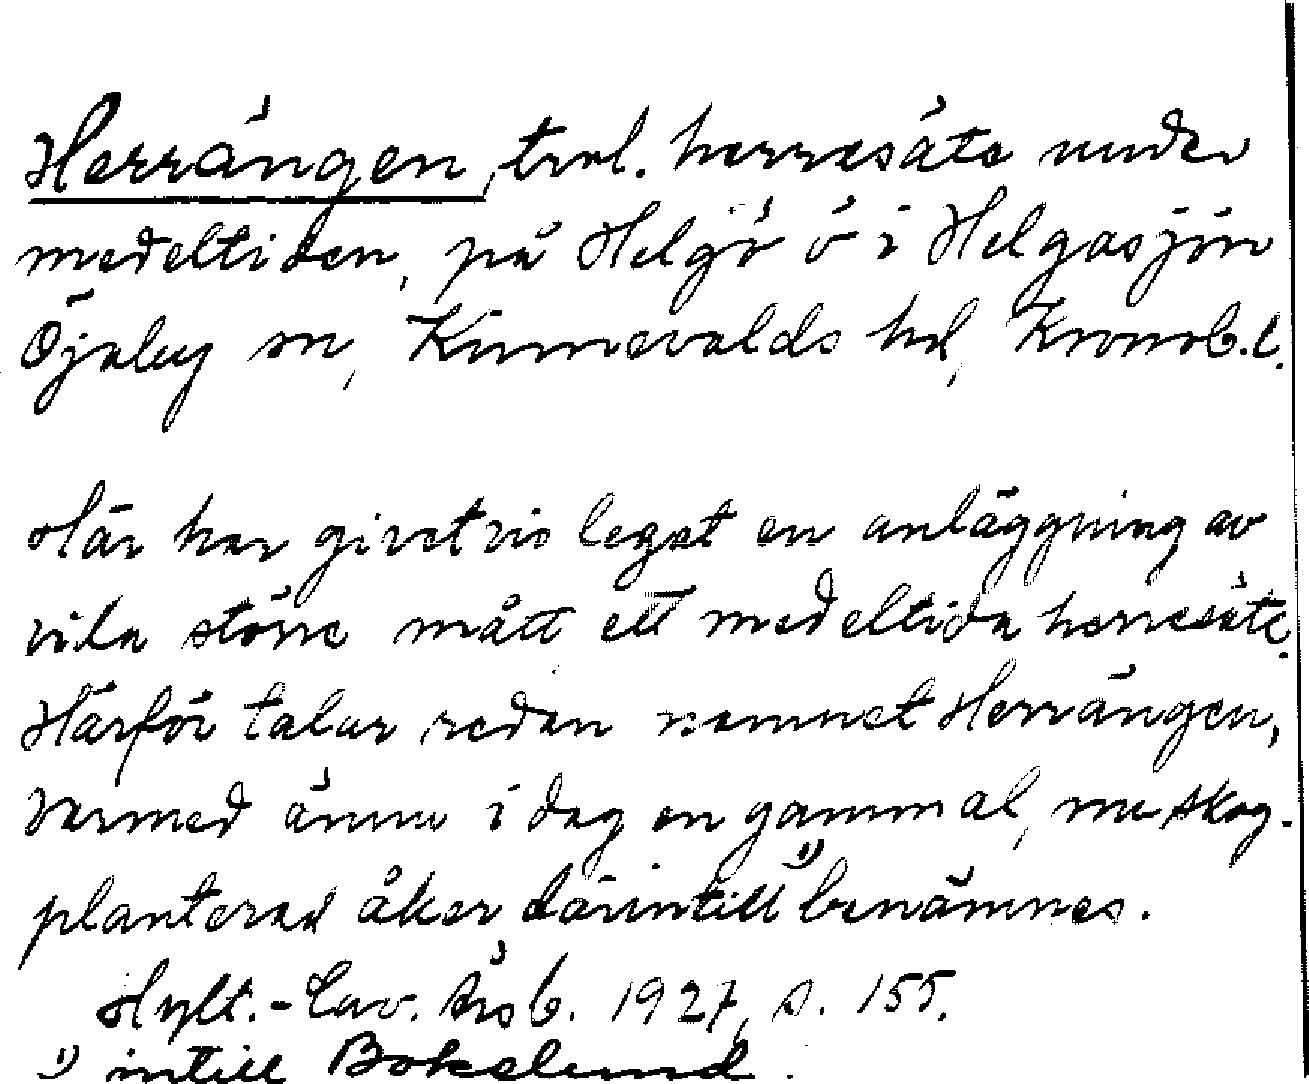 Herrängen, trol. herresäte under
medeltiden, på Helgö ö i Helgasjön
Öjaby sn, Kinnevalds hd, Kronob.l.
Här har givetvis legat en anläggning av
vida större mått ett medeltida herresäte.
Härför talar redan namnet Herrängen,
varmed ännu i dag en gammal, nu skog-
planterad åker därintill 1) benämnes.
Hylt.-Cav. årsb. 1927, s. 155.
1) intill Bokelund.